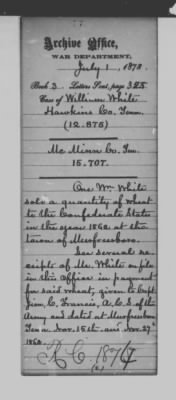 Archive Office,
WAR DEPARTMENT,
July 1, 1878.
Book 3. Letters Sent, page 325
Case of William White
Hawkins Co. Tenn.
(12.875)
Mc Minn Co. Ten.
15.707.
One Wm White
sold a quantity of wheat
to the Confederate States
in the year 1862 at the
town of Murfreesboro.
See several re-
ceipts of Mr. White on file
in this Office in payment
for said wheat, given to Capt
Jim. C. Francis, A.C.S. of the
Army and dated at Murfreesboro
Ten a Nov. 15th and Nov. 27th
1862.
R. C. 1876